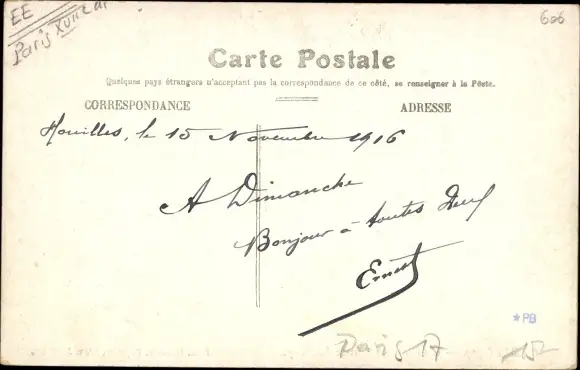 EE
Paris XVII ar
606
Carte Postale
Quelques pays étrangers n'acceptant pas la correspondance de ce côté, se renseigner à la Poste.
CORRESPONDANCE
ADRESSE
Houilles, le 15 Novembre 1916
A Dimanche
Bonjour à toutes Deux
Ernest
*PB
Paris 17